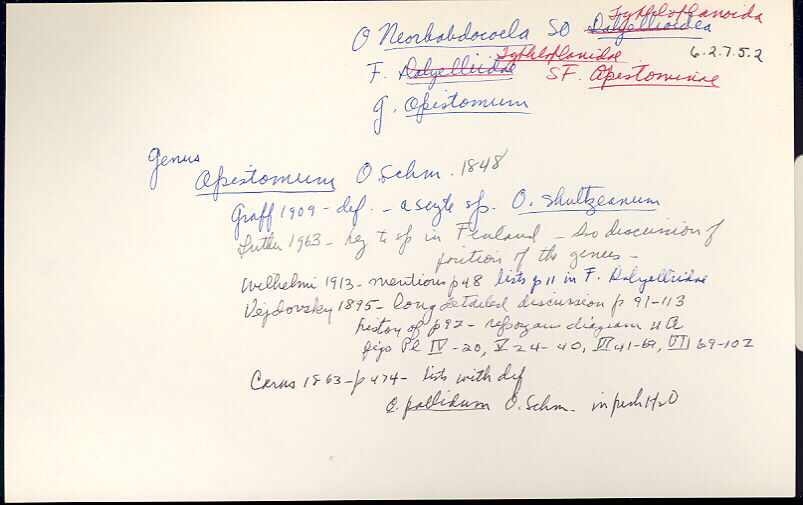 Typhloplanoida
O Neorhabdocoela SO Dalyellioidea
Typhloplanidae 6.2.7.5.2
F. Dalyelliidae SF. Opistominae
G. Opistomum
Genus
Opistomum O. Schm. 1848
Graff 1909 - def. - a sp. O. Shultzeanum
Luther 1963 - key to sp in Finland - also discussion of
position of the genus -
Wilhelmi 1913 - mentions p 48 lists p 11 in F. Dalyelliidae
Vejdovsky 1895 - long detailed discussion p. 91-113
history of p 92 - repro. organ diagram
figs Pl IV - 20, V 24 - 40, VI 41-68, VII 69-102
Carus 1863 - p 474 - lists with def
O. pallidum O. Schm. in fresh H2O